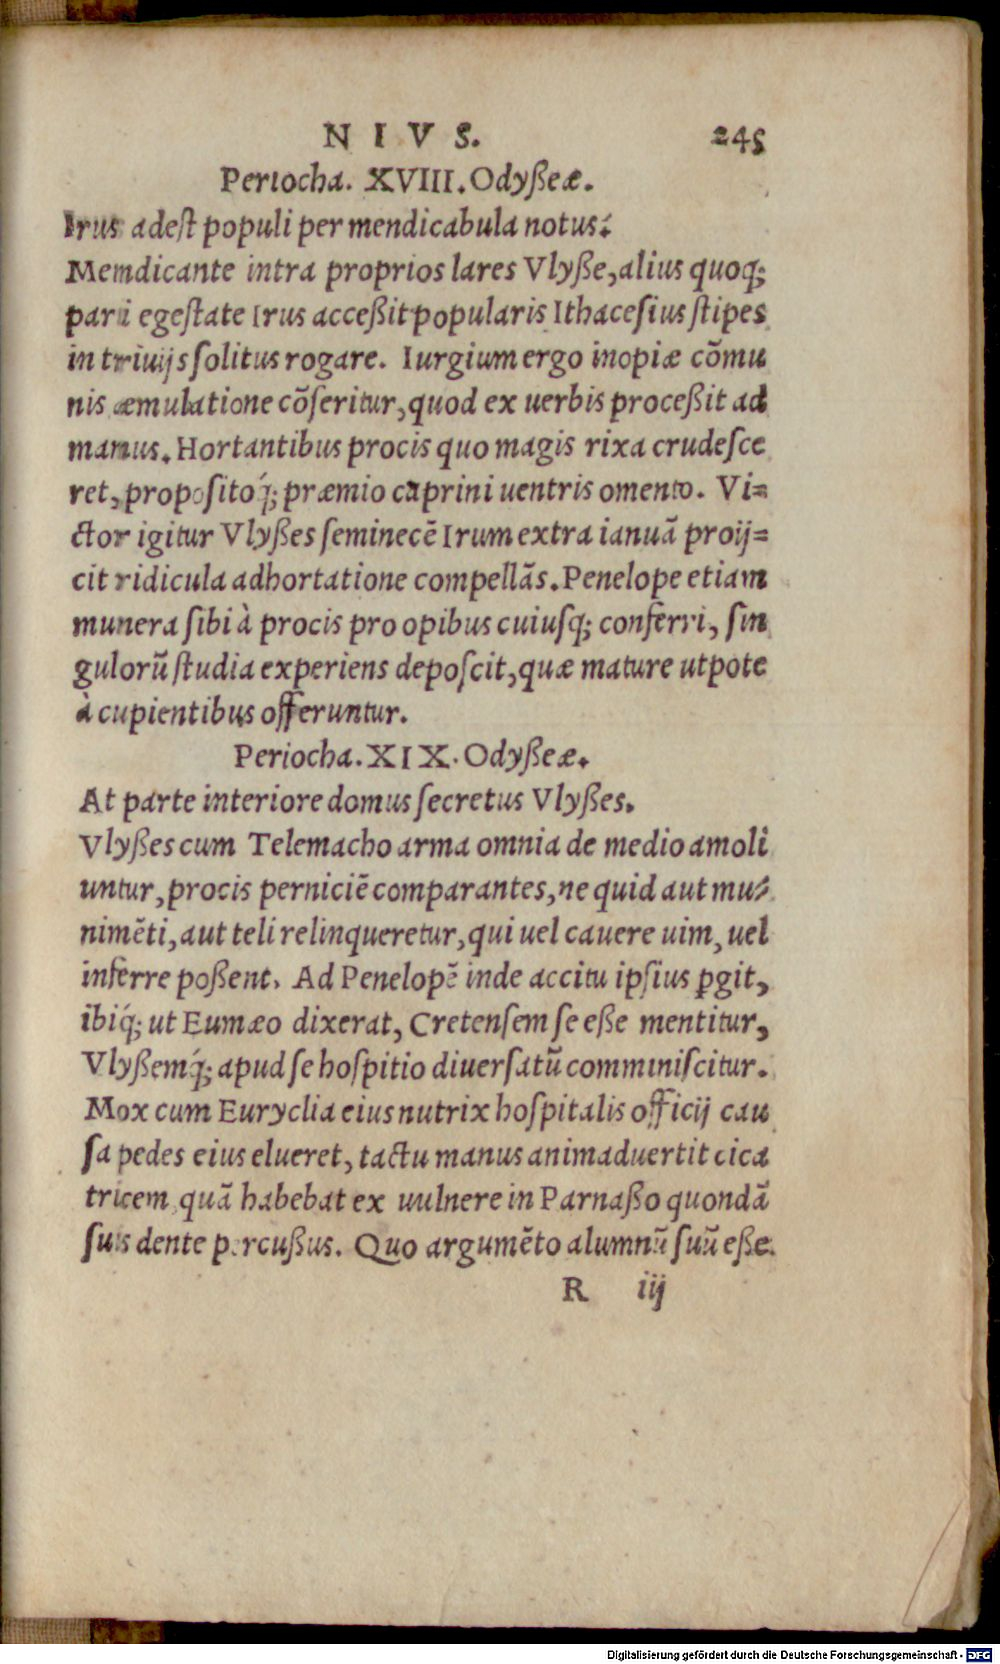 NIVS. 245
Periocha. XVIII. Odyßeæ.
Irus adest populi per mendicabula notus.
Memdicante intra proprios lares Vlyße, alius quoq;
pari egeſtate Irus acceßit popularis Ithaceſius ſtipes
in triuijs ſolitus rogare. Iurgium ergo inopiæ cõmu
nis æmulatione cõſeritur, quod ex uerbis proceßit ad
manus. Hortantibus procis quo magis rixa crudeſce
ret, propoſitoq́; præmio caprini uentris omento. Vi=
ctor igitur Vlyßes ſeminecẽ Irum extra ianuã proij=
cit ridicula adhortatione compellãs. Penelope etiam
munera ſibi à procis pro opibus cuiuſq; conferri, ſin
gulorũ ſtudia experiens depoſcit, quæ mature utpote
à cupientibus offeruntur.
Periocha. XIX. Odyßeæ.
At parte interiore domus ſecretus Vlyßes.
Vlyßes cum Telemacho arma omnia de medio amoli
untur, procis perniciẽ comparantes, ne quid aut mu=
nimẽti, aut teli relinqueretur, qui uel cauere uim, uel
inferre poßent. Ad Penelopẽ inde accitu ipſius ꝑgit,
ibiq́; ut Eumæo dixerat, Cretenſem ſe eße mentitur,
Vlyßemq́; apud ſe hoſpitio diuerſatũ comminiſcitur.
Mox cum Euryclia eius nutrix hoſpitalis officij cau
ſa pedes eius elueret, tactu manus animaduertit cica
tricem quã habebat ex uulnere in Parnaßo quondã
ſuis dente percußus. Quo argumẽto alumnũ ſuũ eße
R iij
Digitalisierung gefördert durch die Deutsche Forschungsgemeinschaft - DFG